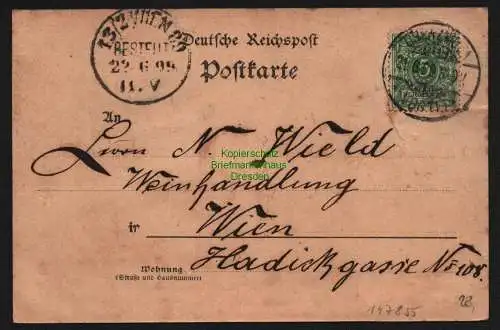 13/2 WIEN
BESTELLT
22.6.99
11.V
Deutsche Reichspost
Postkarte
5
An
Herrn N. Wield
Kopierschutz
Briefmarkenhaus
Dresden
Weinhandlung
in Wien
Wohnung
(Straße und Hausnummer)
Hadickgasse No 108.
147855
28,